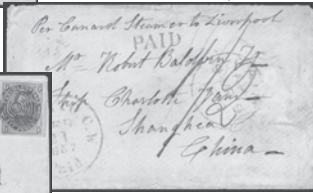 Per Cunard Steamer to Liverpool
PAID
Mr Robert Baldwin Jr
Ship Charlotte Jane
Shanghea
China